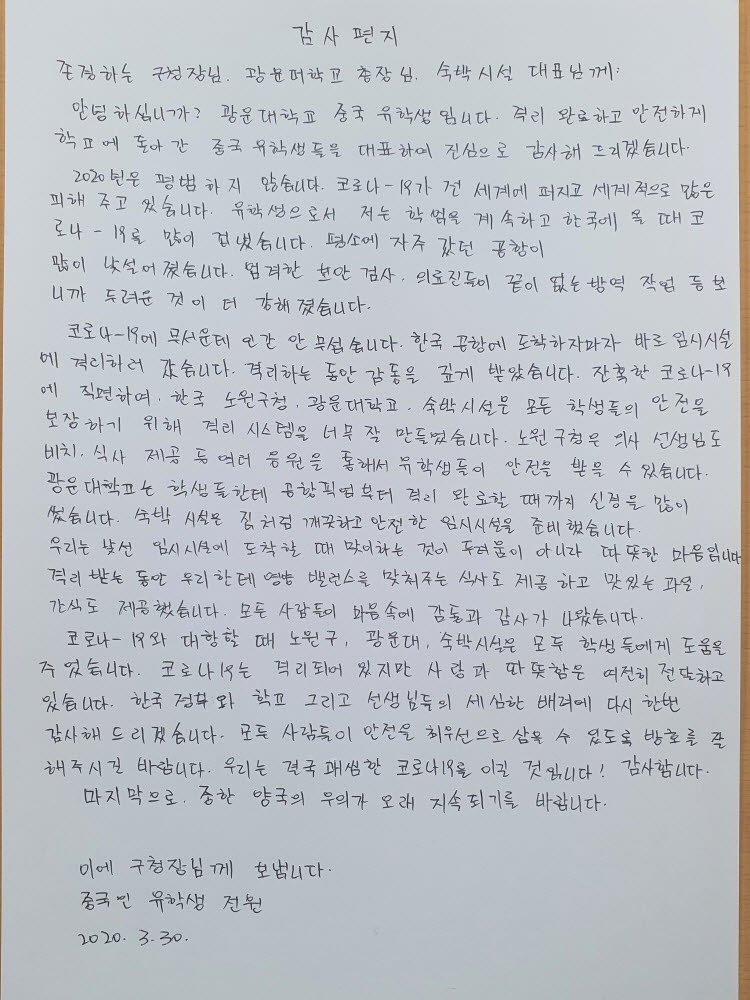 감사 편지
존경하는 구청장님, 광운대학교 총장님, 숙박시설 대표님께:
안녕하십니까? 광운대학교 중국 유학생입니다. 격리 완료하고 안전하게
학교에 돌아간 중국 유학생들을 대표하여 진심으로 감사해 드리겠습니다.
2020년은 평범하지 않습니다. 코로나-19가 전 세계에 퍼지고 세계적으로 많은
피해 주고 있습니다. 유학생으로서 저는 학업을 계속하고 한국에 올 때 코
로나-19를 많이 겁났습니다. 평소에 자주 갔던 공항이
많이 낯설어졌습니다. 엄격한 보안 검사, 의료진들이 끝이 없는 방역 작업 등 보
니까 두려운 것이 더 강해졌습니다.
코로나-19에 무서운데 인간 안 무섭습니다. 한국 공항에 도착하자마자 바로 임시시설
에 격리하러 갔습니다. 격리하는 동안 감동을 깊게 받았습니다. 잔혹한 코로나-19
에 직면하여, 한국 노원구청, 광운대학교, 숙박시설은 모든 학생들의 안전을
보장하기 위해 격리 시스템을 너무 잘 만들었습니다. 노원구청은 의사 선생님도
비치, 식사 제공 등 여러 응원을 통해서 유학생들이 안전을 받을 수 있습니다.
광운대학교는 학생들한테 공항픽업부터 격리 완료할 때까지 신경을 많이
썼습니다. 숙박 시설은 집처럼 깨끗하고 안전한 임시시설을 준비했습니다.
우리는 낯선 임시시설에 도착할 때 맞이하는 것이 두려움이 아니라 따뜻한 마음입니다
격리 받는 동안 우리한테 영양 밸런스를 맞춰주는 식사도 제공하고 맛있는 과일,
간식도 제공했습니다. 모든 사람들이 마음속에 감동과 감사가 나왔습니다.
코로나-19와 대항할 때 노원구, 광운대, 숙박시설은 모두 학생들에게 도움을
주었습니다. 코로나19는 격리되어 있지만 사랑과 따뜻함은 여전히 전달하고
있습니다. 한국 정부와 학교 그리고 선생님들의 세심한 배려에 다시 한번
감사해 드리겠습니다. 모든 사람들이 안전을 최우선으로 삼을 수 있도록 방호를 잘
해주시길 바랍니다. 우리는 결국 괘씸한 코로나19를 이길 것입니다! 감사합니다.
마지막으로, 중한 양국의 우의가 오래 지속되기를 바랍니다.
이에 구청장님께 보냅니다.
중국인 유학생 전원
2020. 3. 30.